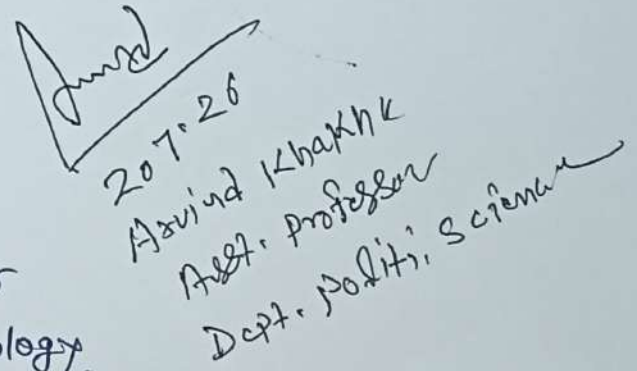 20.7.26
Arvind Khakhk
Asst. Professor
Dept. Politi. Science
logy